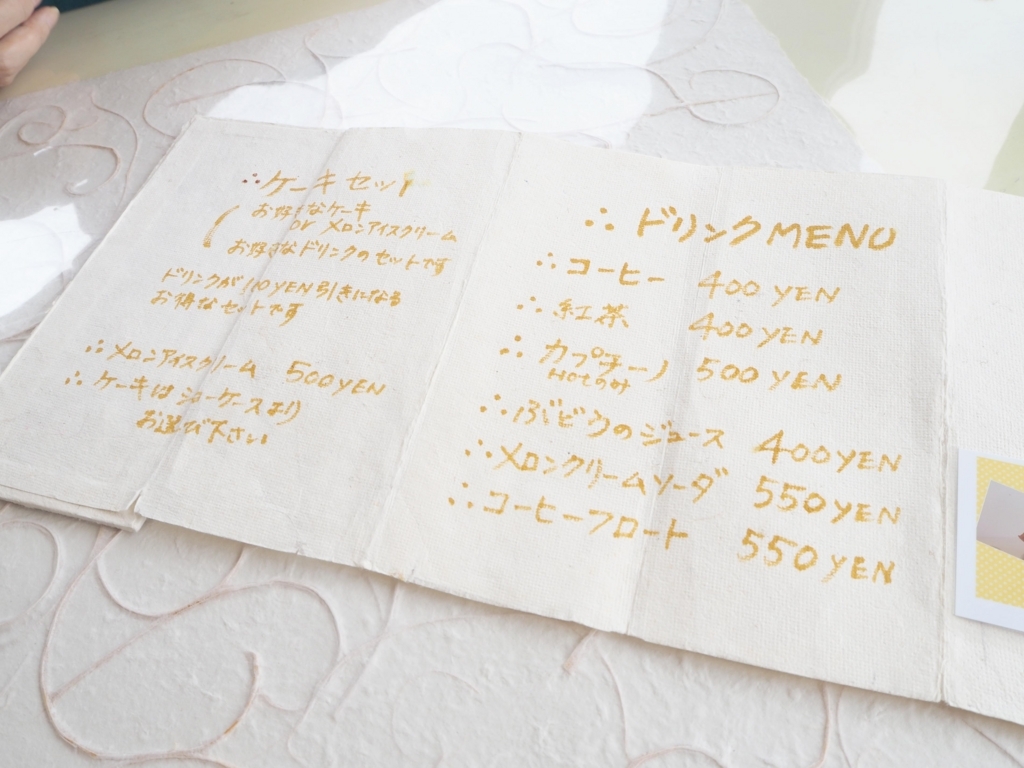 ∴ケーキセット
お好きなケーキ
or メロンアイスクリーム
お好きなドリンクのセットです
ドリンクが110YEN引きになる
お得なセットです
∴メロンアイスクリーム 500YEN
∴ケーキはショーケースより
お選び下さい
∴ドリンクMENU
∴コーヒー 400YEN
∴紅茶 400YEN
∴カプチーノ 500YEN
HOTのみ
∴ぶどうのジュース 400YEN
∴メロンクリームソーダ 550YEN
∴コーヒーフロート 550YEN